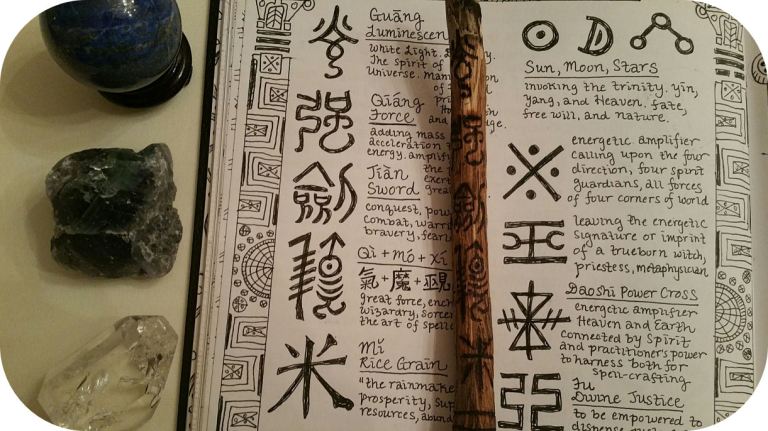 Guāng
Luminescen
white light.
The spirit of
Universe.
of
Qiáng
Force
and
adding mass
acceleration
energy. amplif
Jiàn
Sword
conquest, pow
combat, warri
bravery, fear
Qì + mó + xí
氣+魔+覡
great force, ener
wizardry, sorcer
the art of spell
Mǐ
Rice Grain
"the rainmake
prosperity, sup
resources, abund
Sun, Moon, Stars
invoking the trinity. yin,
yang, and Heaven. fate,
free will, and nature.
energetic amplifier
calling upon the four
direction, four spirit
guardians, all forces
of four corners of world
leaving the energetic
signature or imprint
of a trueborn witch,
priestess, metaphysician
Daoshi Power Cross
energetic amplifier
Heaven and Earth
connected by Spirit
and practitioner's power
to harness both for
spell-crafting
Fu
Divine Justice
to be empowered to
dispense